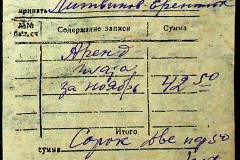 принять Литвинов
№№ Содержание записи Сумма
Аренд
плата
за ноябрь 42 50
Итого
сумма Сорок две руб 50